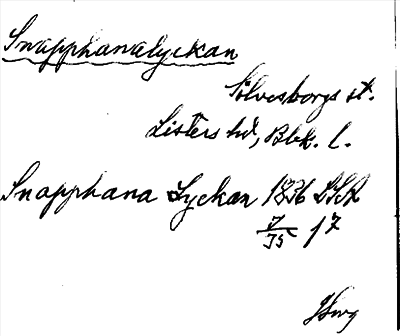 Snapphanalyckan
Sölvesborgs st.
Listers hd, Blek. l.
Snapphana Lyckan 1836 LSA
17